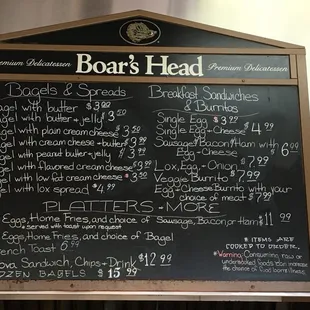 Premium Delicatessen Boar's Head Premium Delicatessen
Bagels & Spreads
agel with butter $3.00
agel with butter + jelly $3.50
agel with plain cream cheese $3.50
agel with cream cheese + butter $3.99
agel with peanut butter + jelly $3.99
agel with flavored cream cheese $3.99
agel with low fat cream cheese $3.50
agel with lox spread $4.99
Breakfast Sandwiches
& Burritos
Single Egg $3.99
Single Egg + Cheese $4.99
Sausage/Bacon/Ham with 6.99
Egg + Cheese
Lox, Egg, + Onion $7.99
Veggie Burrito $7.99
Egg + Cheese Burrito with your
choice of meat $7.99
PLATTERS + MORE
Eggs, Home Fries, and choice of Sausage, Bacon, or Ham $11.99
* served with toast upon request
Eggs, Home Fries, and choice of Bagel
rench Toast 6.99
ova Sandwich, Chips + Drink $12.99
OZEN BAGELS $15.99
* ITEMS ARE
COOKED TO ORDER.
*Warning: Consuming raw or
undercooked foods can increase
the chance of food borne illness